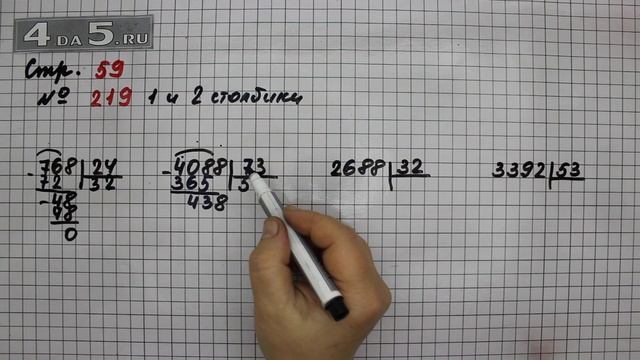 4 DA 5.RU
Стр. 59
№ 219 1 и 2 столбики
-768 | 24
72 | 32
-48
48
0
-4088 | 73
365 | 5
438
2688 | 32
3392 | 53